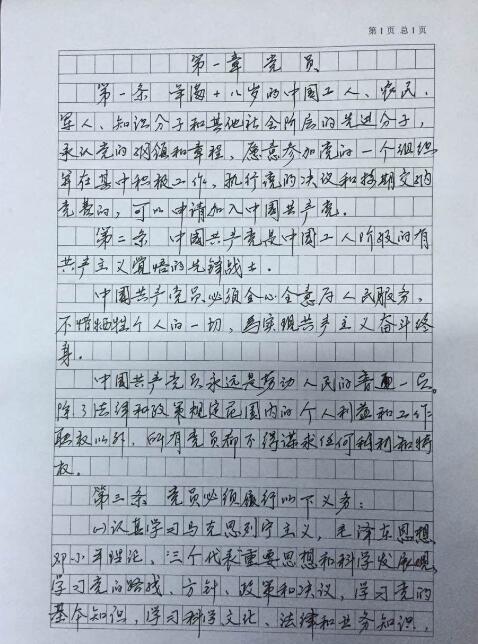 第1页 总1页
第一章 党员
第一条 年满十八岁的中国工人、农民、
军人、知识分子和其他社会阶层的先进分子,
承认党的纲领和章程,愿意参加党的一个组织
并在其中积极工作、执行党的决议和按期交纳
党费的,可以申请加入中国共产党.
第二条 中国共产党是中国工人阶级的有
共产主义觉悟的先锋战士.
中国共产党员必须全心全意为人民服务,
不惜牺牲个人的一切,为实现共产主义奋斗终
身.
中国共产党员永远是劳动人民的普通一员。
除了法律和政策规定范围内的个人利益和工作
职权以外,所有党员都不得谋求任何私利和特
权.
第三条 党员必须履行以下义务:
(1)认真学习马克思列宁主义,毛泽东思想
邓小平理论、三个代表重要思想和科学发展观,
学习党的路线、方针、政策和决议,学习党的
基本知识,学习科学文化、法律和业务知识,